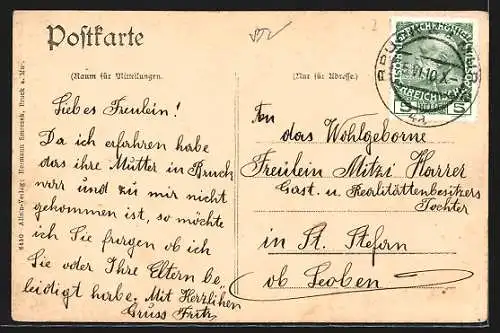 Postkarte
(Raum für Mitteilungen.
(Nur für Adresse.)
Liebes Freulein!
Da ich erfahren habe
das ihre Mutter in Bruck
warr und zu mir nicht
gekommen ist, so möchte
ich Sie fragen ob ich
Sie oder Ihre Eltern be,
leidigt habe. Mit Herzlihen
Gruss Fritz
An das Wohlgeborne
Freulein Mitzi Harrer
Gast. u Realitättenbesitzers
Tochter
in St. Stefan
ob Leoben
6450 Allein-Verlag: Hermann Bruck a. Mur.
5 5